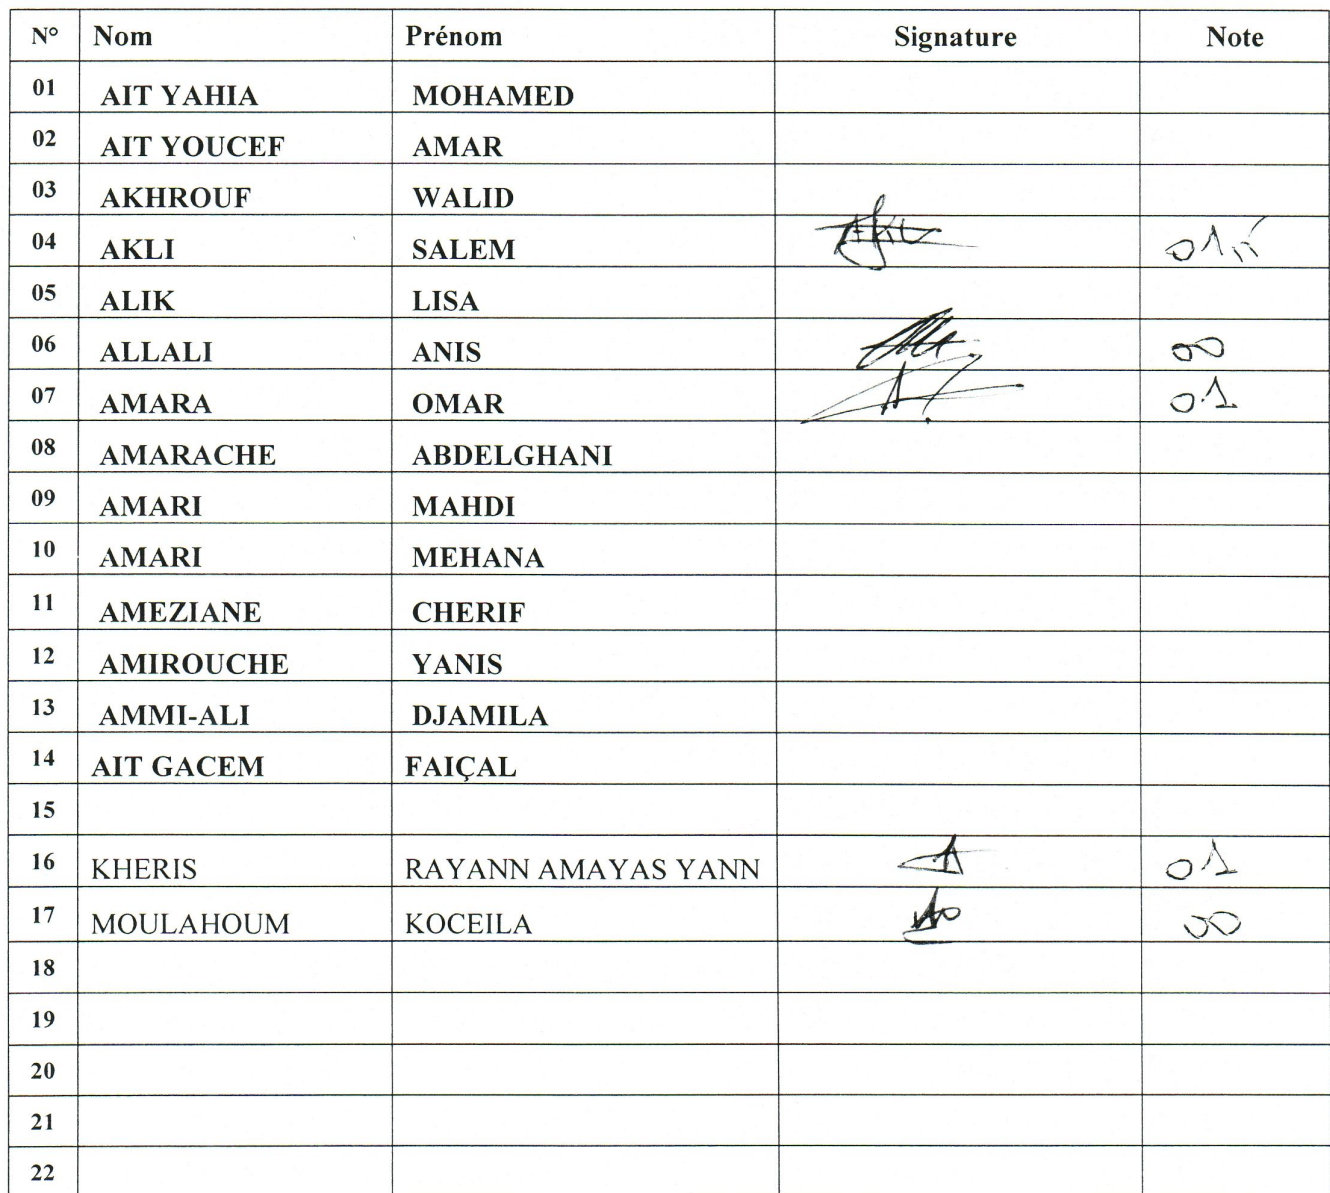 N° Nom Prénom Signature Note
01 AIT YAHIA MOHAMED
02 AIT YOUCEF AMAR
03 AKHROUF WALID
04 AKLI SALEM
05 ALIK LISA
06 ALLALI ANIS 00
07 AMARA OMAR 01
08 AMARACHE ABDELGHANI
09 AMARI MAHDI
10 AMARI MEHANA
11 AMEZIANE CHERIF
12 AMIROUCHE YANIS
13 AMMI-ALI DJAMILA
14 AIT GACEM FAIÇAL
15
16 KHERIS RAYANN AMAYAS YANN 01
17 MOULAHOUM KOCEILA 00
18
19
20
21
22